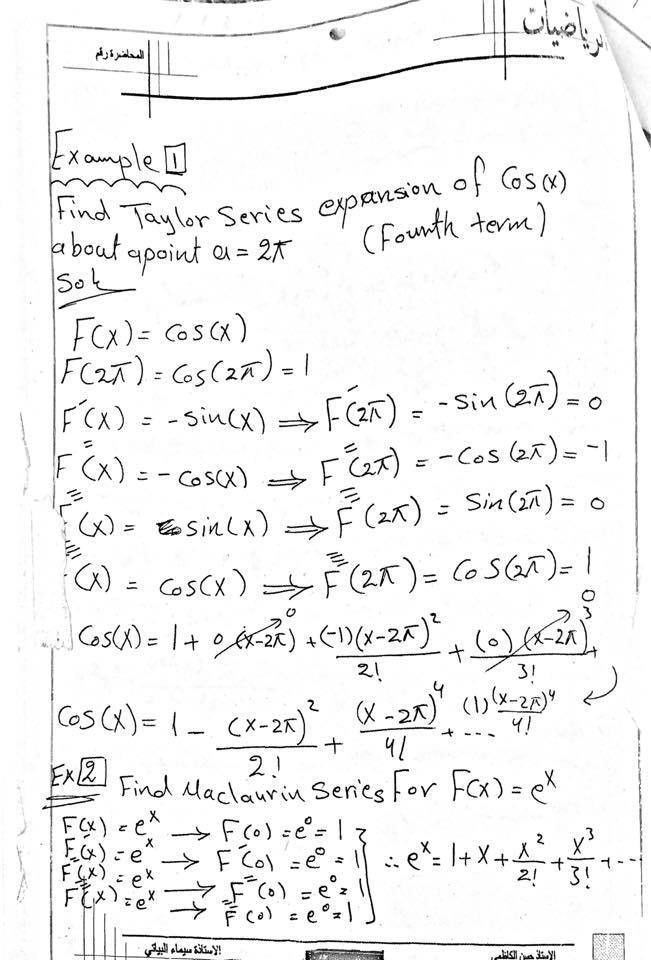 الرياضيات
المحاضرة رقم
Example 1
Find Taylor Series expansion of Cos(x)
about apoint a = 2π (Fourth term)
Sol
F(x) = Cos(x)
F(2π) = Cos(2π) = 1
F′(x) = -Sin(x) ⇒ F′(2π) = -Sin(2π) = 0
F″(x) = -Cos(x) ⇒ F″(2π) = -Cos(2π) = -1
F‴(x) = Sin(x) ⇒ F‴(2π) = Sin(2π) = 0
⁗(x) = Cos(x) ⇒ F⁗(2π) = Cos(2π) = 1
Cos(x) = 1 + 0 (x-2π) + (-1)(x-2π)²/2! + (0)(x-2π)³/3! +
(1)(x-2π)⁴/4!
Cos(x) = 1 - (x-2π)²/2! + (x-2π)⁴/4! + ....
Ex 2 Find Maclaurin Series For F(x) = eˣ
F(x) = eˣ → F(0) = e⁰ = 1
F′(x) = eˣ → F′(0) = e⁰ = 1 ∴ eˣ = 1 + x + x²/2! + x³/3! + ...
F″(x) = eˣ → F″(0) = e⁰ = 1
F‴(x) = eˣ → F‴(0) = e⁰ = 1
الاستاذة سيماء البياتي
الاستاذ حسن الكاظمي